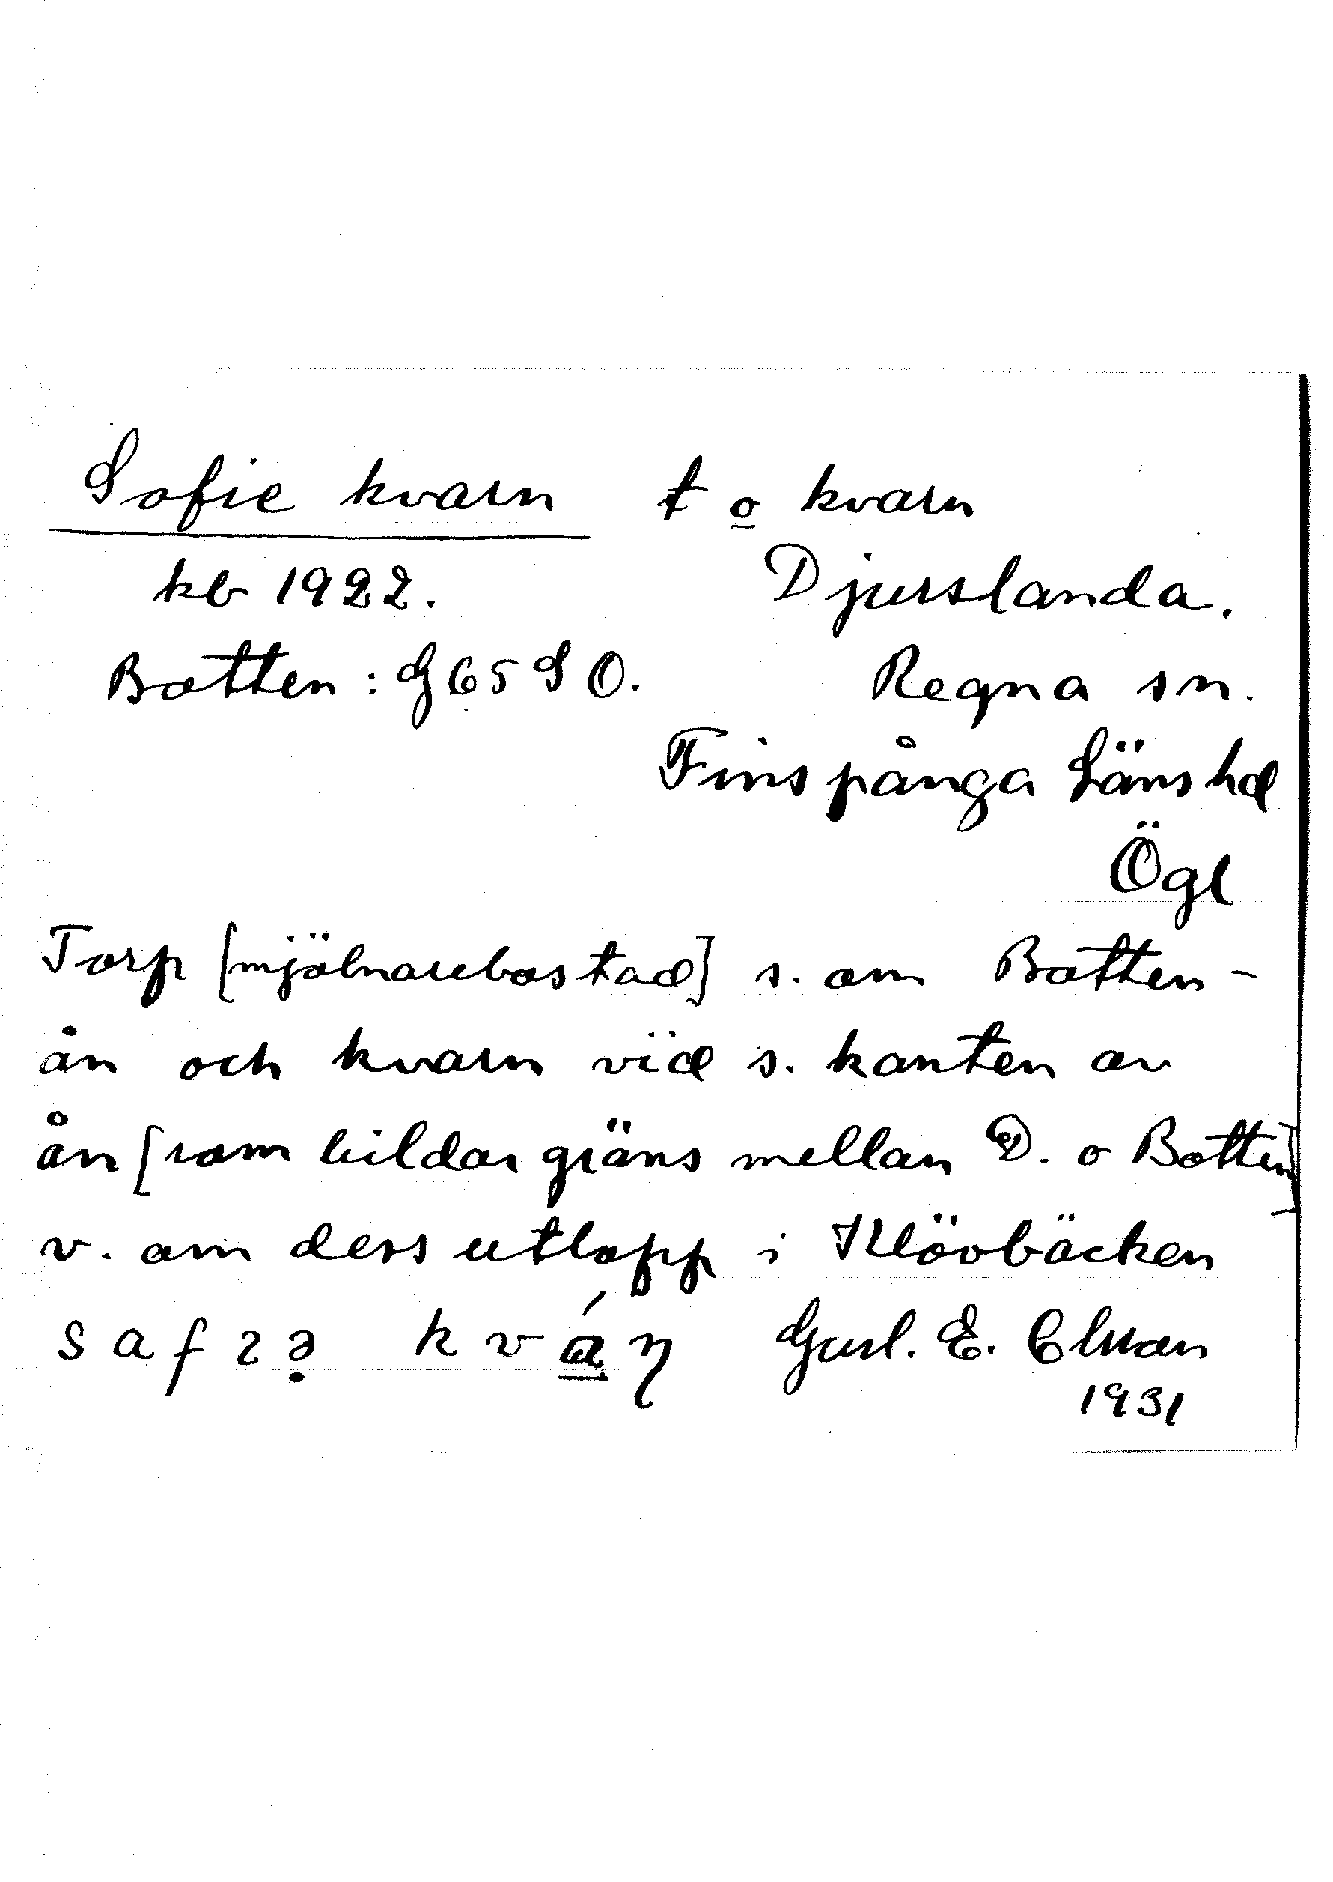 Sofie kvarn t o kvarn
kb 1922. Djurslanda.
Botten : G65 S O. Regna sn.
Finspånga Läns hd
Ögl
Torp [mjölnarebostad] s. om Botten-
ån och kvarn vid s. kanten av
ån [som bildar gräns mellan D. o Botten]
v. om dess utlopp i Klövbäcken
safɩə̣ kvá̲η Gusl. E. Elman
1931